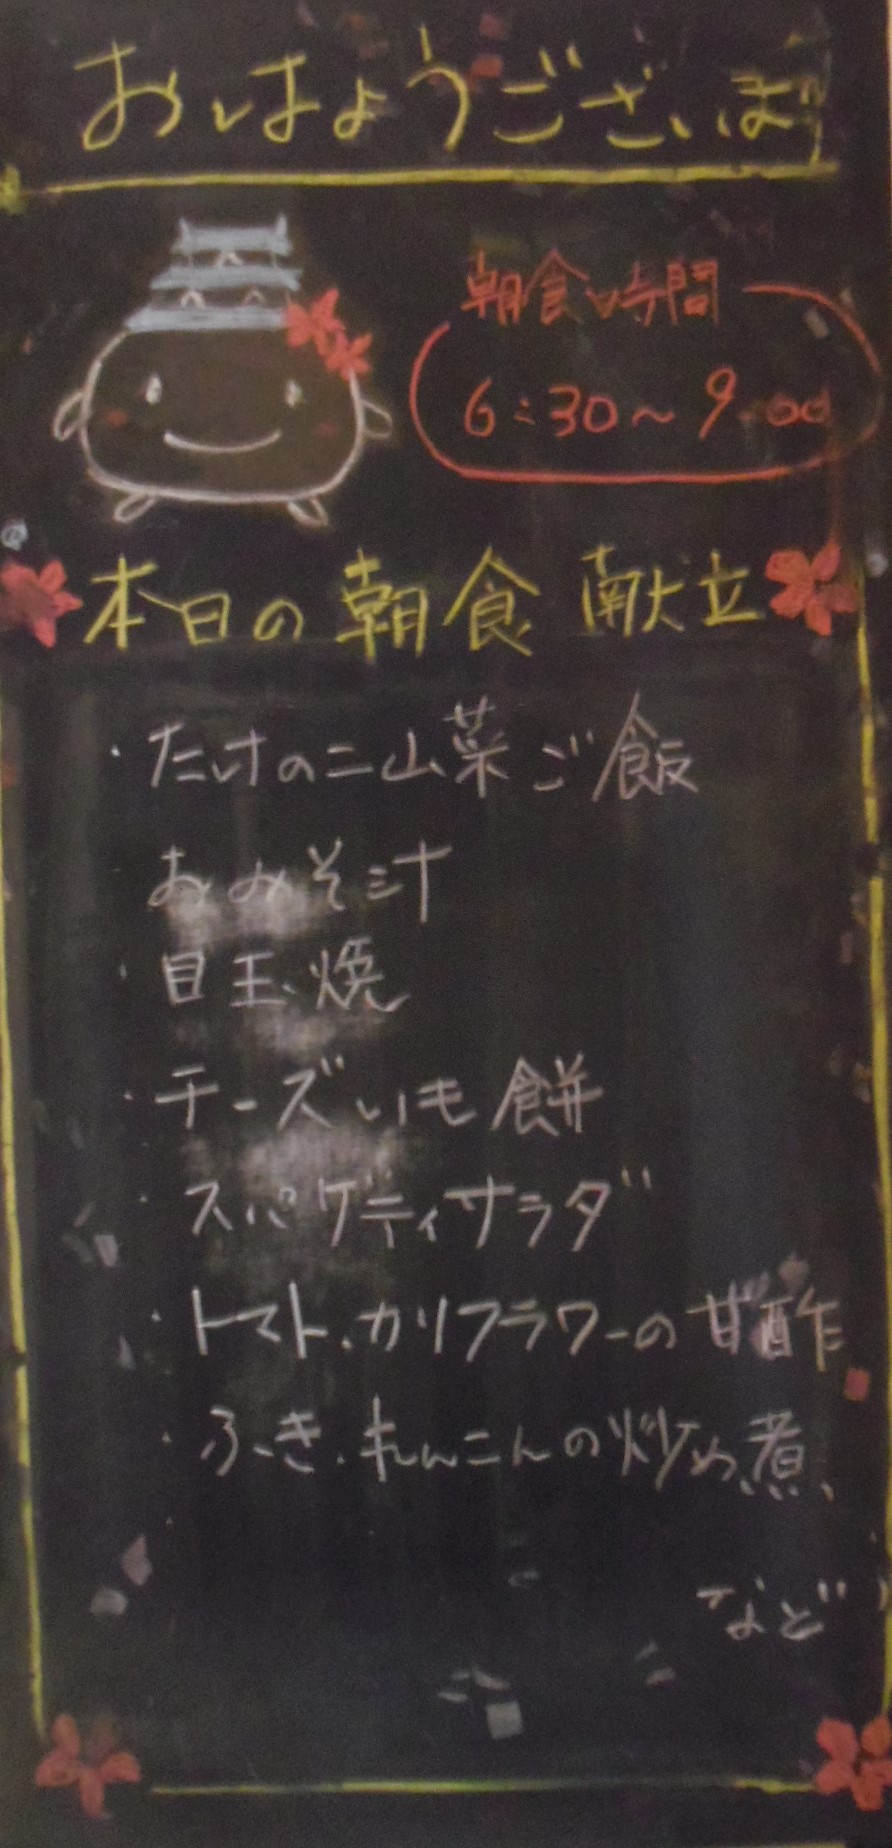 おはようございます
朝食時間
6:30～9:00
本日の朝食献立
・たけのこ山菜ご飯
おみそ汁
・目玉焼
・チーズいも餅
・スパゲティサラダ
・トマト.カリフラワーの甘酢
・ふき.れんこんの炒め煮
など